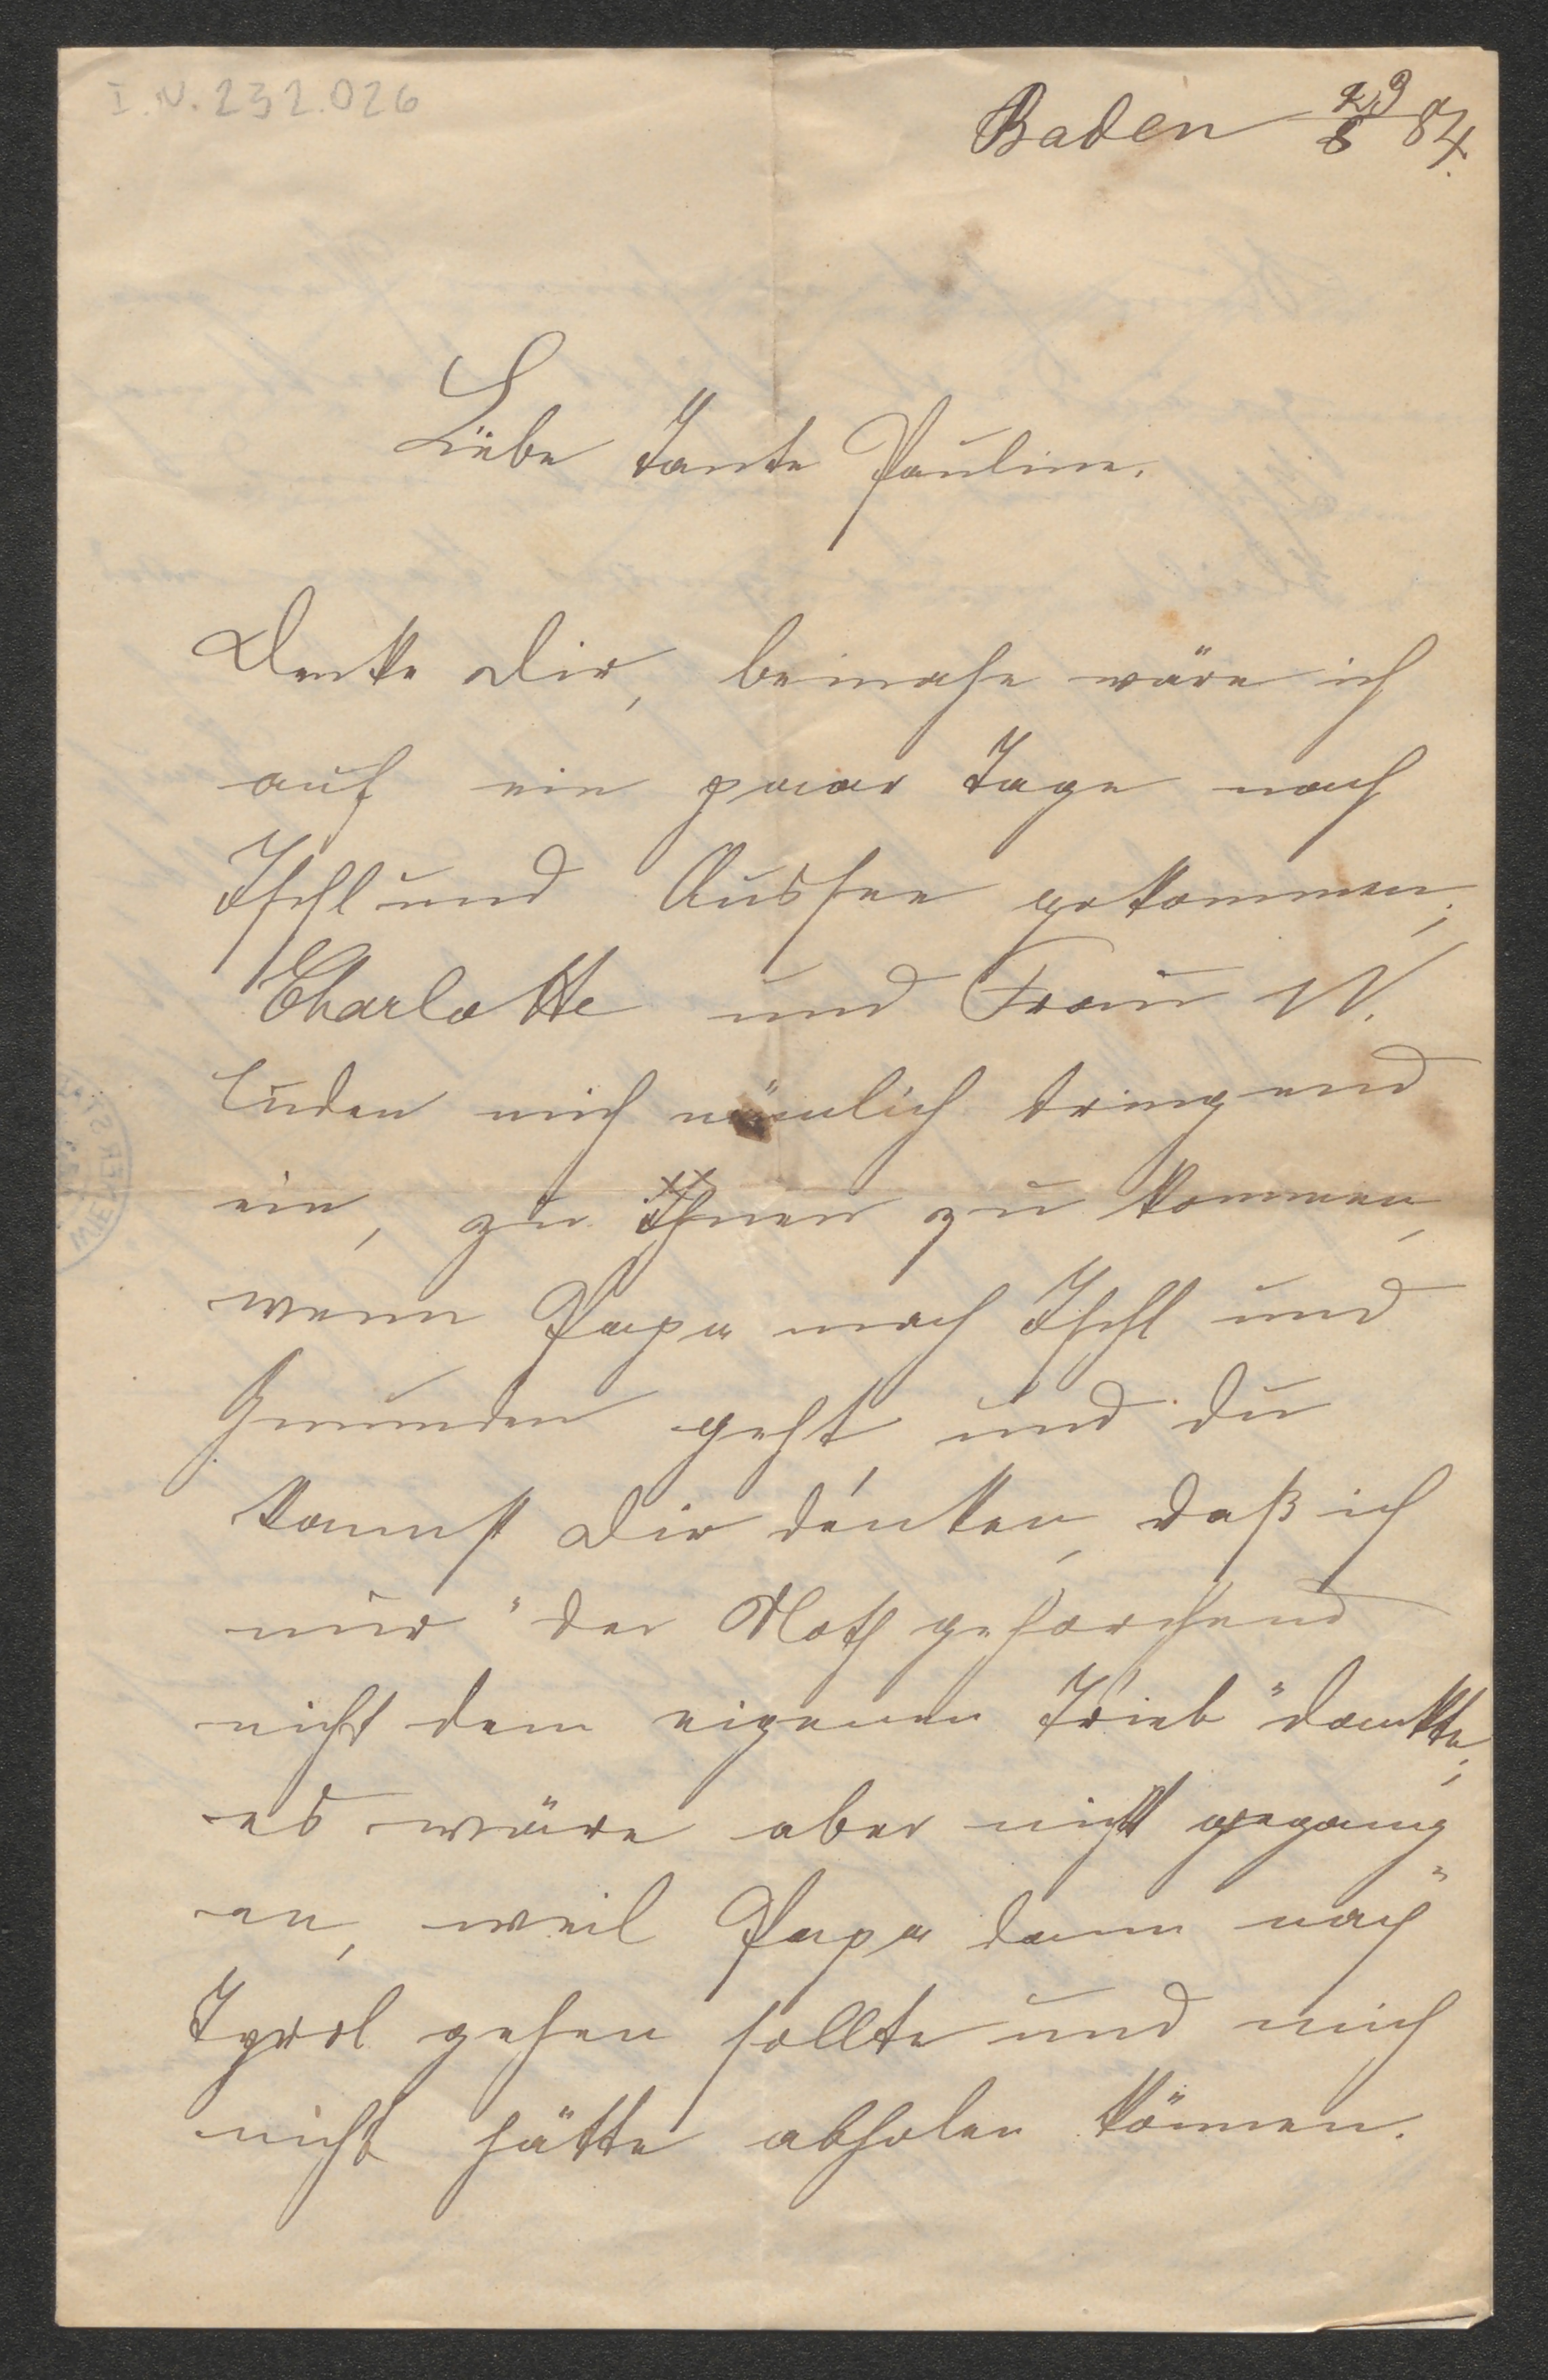 I.N. 232.026
Baden 29/8 84.
Liebe Tante Pauline.
Denke Dir, beinahe wäre ich
auf ein paar Tage nach
Ischl und Aussee gekommen;
Charlotte und Frau W.
luden mich nämlich dringend
ein, zu Ihnen zu kommen,
wenn Papa nach Ischl und
Gmunden geht, und Du
kannst Dir denken, daß ich
nur "der Noth gehorchend
nicht dem eigenen Trieb" dankte;
es wäre aber nicht gegang
en, weil Papa dann nach
Tyrol gehen sollte und mich
nicht hätte abholen können.